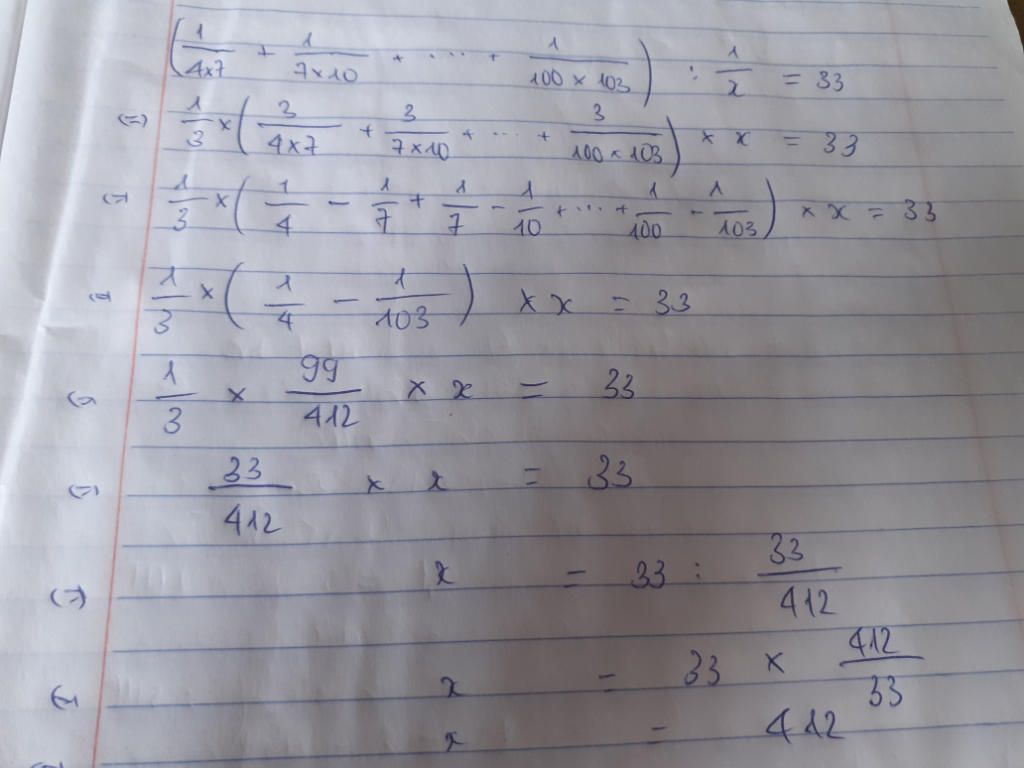 (1/4×7 + 1/7×10 + ... + 1/100×103) : 1/x = 33
(=) 1/3 × (3/4×7 + 3/7×10 + ... + 3/100×103) × x = 33
(=) 1/3 × (1/4 - 1/7 + 1/7 - 1/10 + ... + 1/100 - 1/103) × x = 33
(=) 1/3 × (1/4 - 1/103) × x = 33
(=) 1/3 × 99/412 × x = 33
(=) 33/412 × x = 33
(=) x = 33 : 33/412
(=) x = 33 × 412/33
x = 412